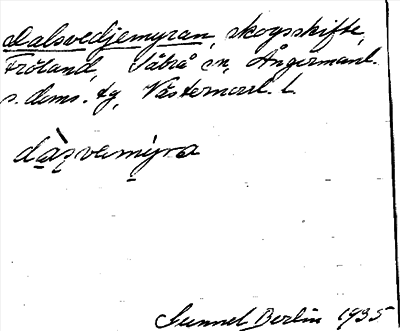 Dalsvedjemyran, skogsskifte,
Fröland, Säbrå sn, Ångermanl.
s. doms. tg, Västernorrl. l.
dàl̥svemyra
Gunnel Berlin 1935